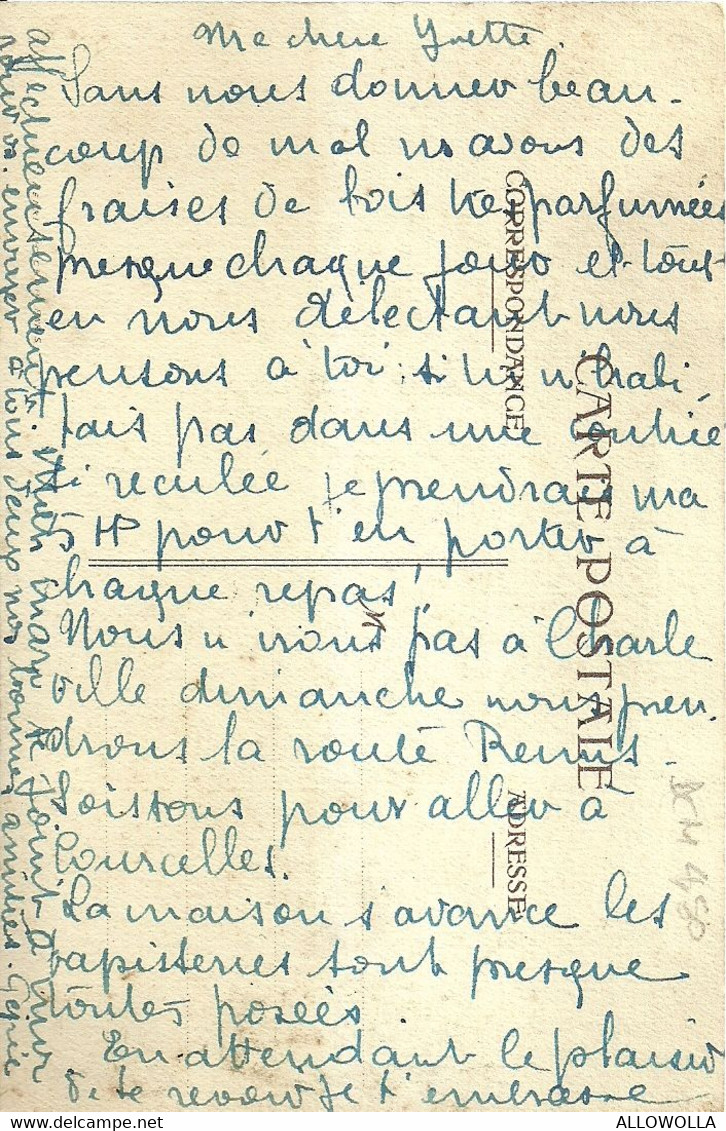 Ma chère Yvette.
Sans nous donner beau-
coup de mal ns avons des
fraises de bois très parfumées
presque chaque jour et tout
en nous délectant nous
pensons à toi; si tu n'habi
tais pas dans une contrée
si reculée je prendrais ma
5 HP pour t'en porter à
chaque repas!
Nous n'irons pas à Charle
ville dimanche nous pren
drons la route Reims-
Soissons pour aller à
Courcelles.
La maison s'avance les
tapisseries sont presque
toutes posées
En attendant le plaisir
de te revoir je t'embrasse
affectueusement. Mon mari se joint à moi
pour vs envoyer à tous deux nos bonnes amitiés.
CORRESPONDANCE
CARTE POSTALE
ADRESSE
M
ALLOWOLLA